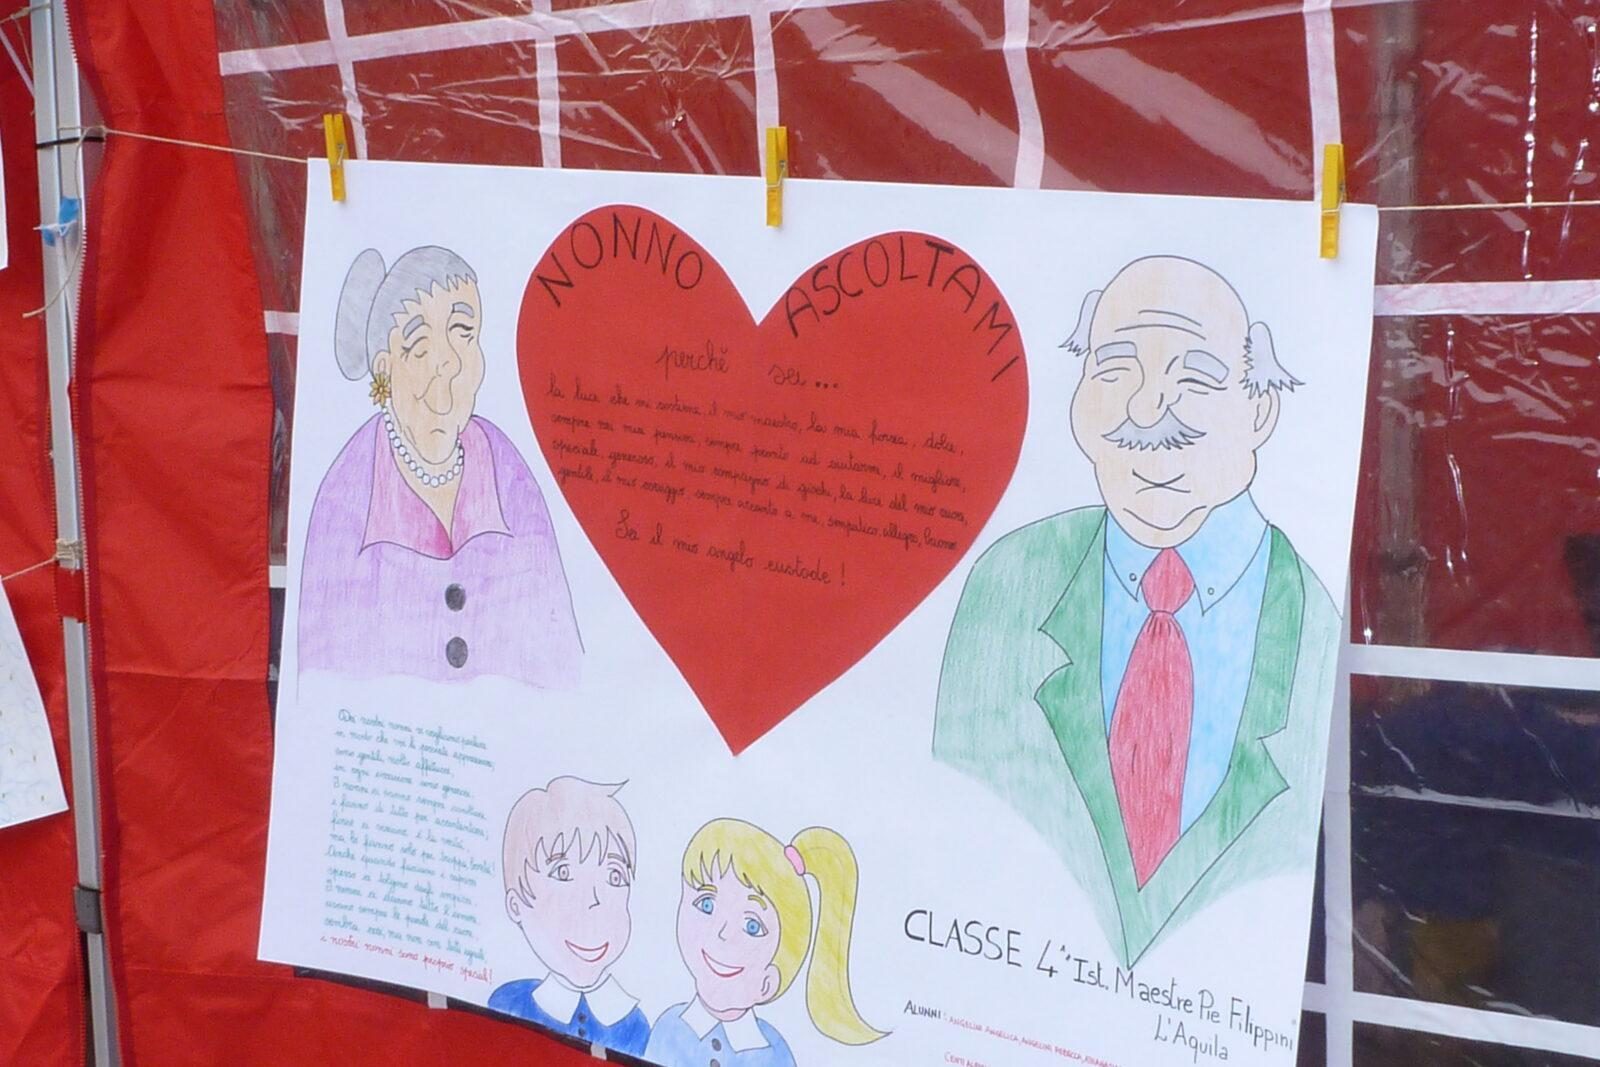 NONNO ASCOLTAMI
perchè sei...
la luce che mi sostiene, il mio maestro, la mia forza, dolce,
sempre nei miei pensieri, sempre pronto ad aiutarmi, il migliore,
speciale, generoso, il mio compagno di giochi, la luce del mio cuore,
gentile, il mio coraggio, sempre accanto a me, simpatico, allegro, buono
Sei il mio angelo custode!
Dei nostri nonni vi vogliamo parlare
in modo che voi li possiate apprezzare;
sono gentili, molto affettuosi,
in ogni occasione sono generosi.
I nonni ci sanno sempre ascoltare
e fanno di tutto per accontentarci;
forse ci viziano è la verità,
ma lo fanno solo per troppa bontà!
Anche quando facciamo i capricci
spesso ci tolgono dagli impicci.
I nonni ci danno tutto l'amore,
usano sempre le parole del cuore,
sembra così, ma non son tutti uguali,
i nostri nonni sono proprio speciali!
CLASSE 4ª "Ist. Maestre Pie Filippini"
L'Aquila
ALUNNI: ANGELINI ANGELICA, ANGELINI REBECCA,